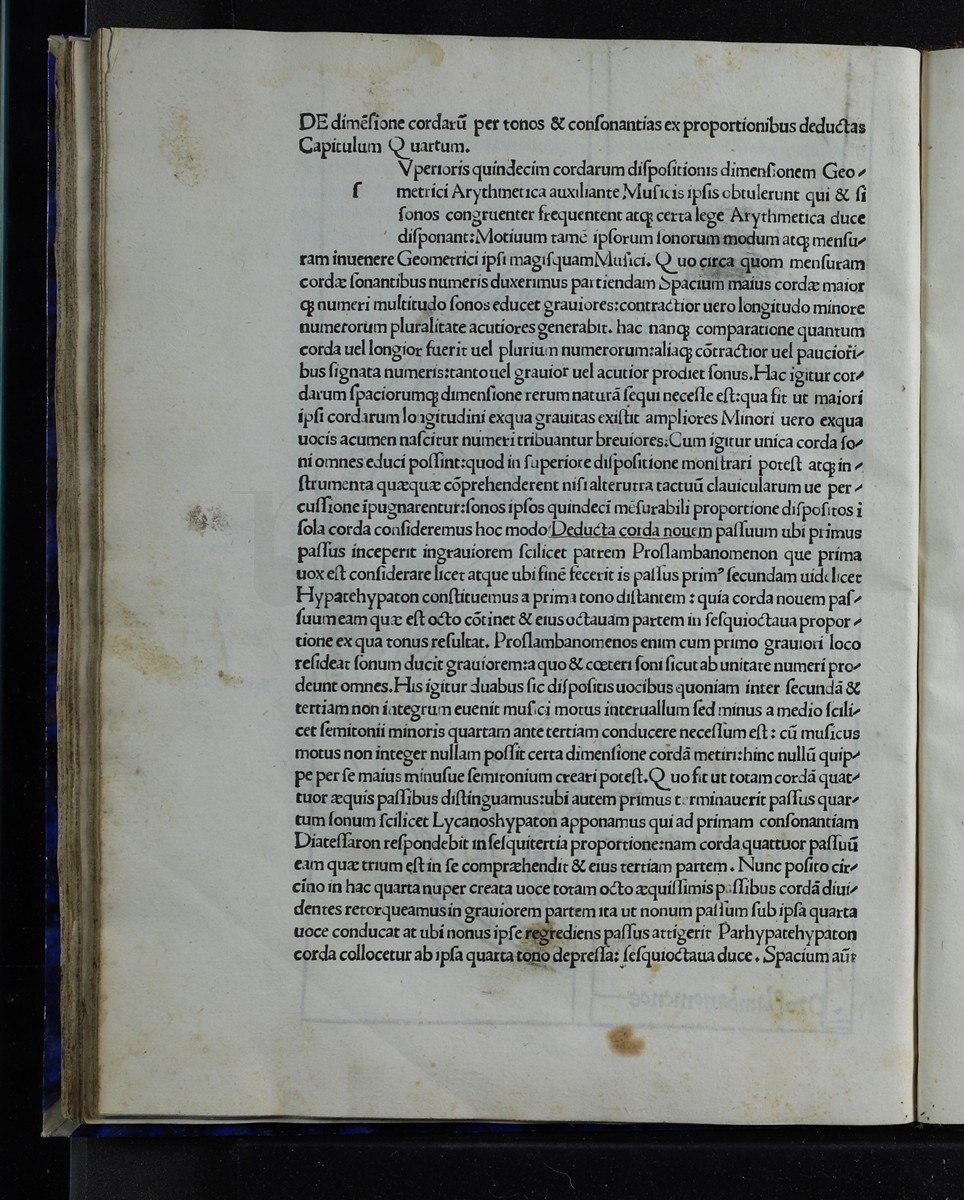 DE dimēſione cordarū per tonos & conſonantias ex proportionibus deductas
Capitulum Quartum.
Vperioris quindecim cordarum diſpoſitionis dimenſionem Geo-
ſ metrici Arythmetica auxiliante Muſicis ipſis obtulerunt qui & ſi
ſonos congruenter frequentent atq; certa lege Arythmetica duce
diſponant:Motiuum tamē ipſorum ſonorum modum atq; menſu-
ram inuenere Geometrici ipſi magiſquam Muſici. Quo circa quom menſuram
cordæ ſonantibus numeris duxerimus partiendam Spacium maius cordæ maior
q; numeri multitudo ſonos educet grauiores:contractior uero longitudo minore
numerorum pluralitate acutiores generabit. hac nanq; comparatione quantum
corda uel longior fuerit uel plurium numerorum:aliaq; cōtractior uel pauciori-
bus ſignata numeris:tanto uel grauior uel acutior prodiet ſonus.Hac igitur cor-
darum ſpaciorumq; dimenſione rerum naturā ſequi neceſſe eſt:qua fit ut maiori
ipſi cordarum longitudini exqua grauitas exiſtit ampliores Minori uero exqua
uocis acumen naſcitur numeri tribuantur breuiores:Cum igitur unica corda ſo-
ni omnes educi poſſint:quod in ſuperiore diſpoſitione monſtrari poteſt atq; in-
ſtrumenta quæquæ cōprehenderent niſi alterutra tactuū clauicularum ue per-
cuſſione īpugnarentur:ſonos ipſos quindeci mēſurabili proportione diſpoſitos ī
ſola corda conſideremus hoc modo Deducta corda nouem paſſuum ubi primus
paſſus inceperit ingrauiorem ſcilicet patrem Proſlambanomenon que prima
uox eſt conſiderare licet atque ubi finē fecerit is paſſus primꝰ ſecundam uidelicet
Hypatehypaton conſtituemus a prima tono diſtantem : quia corda nouem paſ-
ſuum eam quæ eſt octo cōtinet & eius octauam partem in ſeſquioctaua propor-
tione ex qua tonus reſultat. Proſlambanomenos enim cum primo grauiori loco
reſideat ſonum ducit grauiorem:a quo & cœteri ſoni ſicut ab unitate numeri pro-
deunt omnes.His igitur duabus ſic diſpoſitis uocibus quoniam inter ſecundā &
tertiam non integrum euenit muſici motus interuallum ſed minus a medio ſcili-
cet ſemitonii minoris quartam ante tertiam conducere neceſſum eſt: cū muſicus
motus non integer nullam poſſit certa dimenſione cordā metiri:hinc nullū quip-
pe per ſe maius minuſue ſemitonium creari poteſt.Quo fit ut totam cordā quat-
tuor æquis paſſibus diſtinguamus:ubi autem primus terminauerit paſſus quar-
tum ſonum ſcilicet Lycanoshypaton apponamus qui ad primam conſonantiam
Diateſſaron reſpondebit in ſeſquitertia proportione:nam corda quattuor paſſuū
eam quæ trium eſt in ſe compræhendit & eius tertiam partem. Nunc poſito cir-
cino in hac quarta nuper creata uoce totam octo æquiſſimis paſſibus cordā diui-
dentes retorqueamus in grauiorem partem ita ut nonum paſſum ſub ipſa quarta
uoce conducat at ubi nonus ipſe regrediens paſſus attigerit Parhypatehypaton
corda collocetur ab ipſa quarta tono depreſſa: ſeſquioctaua duce. Spacium